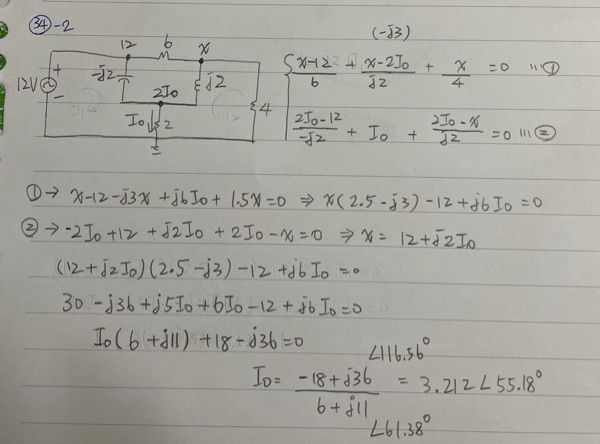 34-2
12 6 x
(-j3)
12V + - -j2 j2 2I₀ I₀ 2 4
(x-12)/6 + (x-2I₀)/j2 + x/4 = 0 ...①
(2I₀-12)/-j2 + I₀ + (2I₀-x)/j2 = 0 ...②
① → x-12-j3x+j6I₀+1.5x=0 ⇒ x(2.5-j3)-12+j6I₀=0
② → -2I₀+12+j2I₀+2I₀-x=0 ⇒ x= 12+j2I₀
(12+j2I₀)(2.5-j3)-12+j6I₀=0
30-j36+j5I₀+6I₀-12+j6I₀=0
I₀(6+j11)+18-j36=0
∠116.56°
I₀= (-18+j36)/(6+j11) = 3.212∠55.18°
∠61.38°